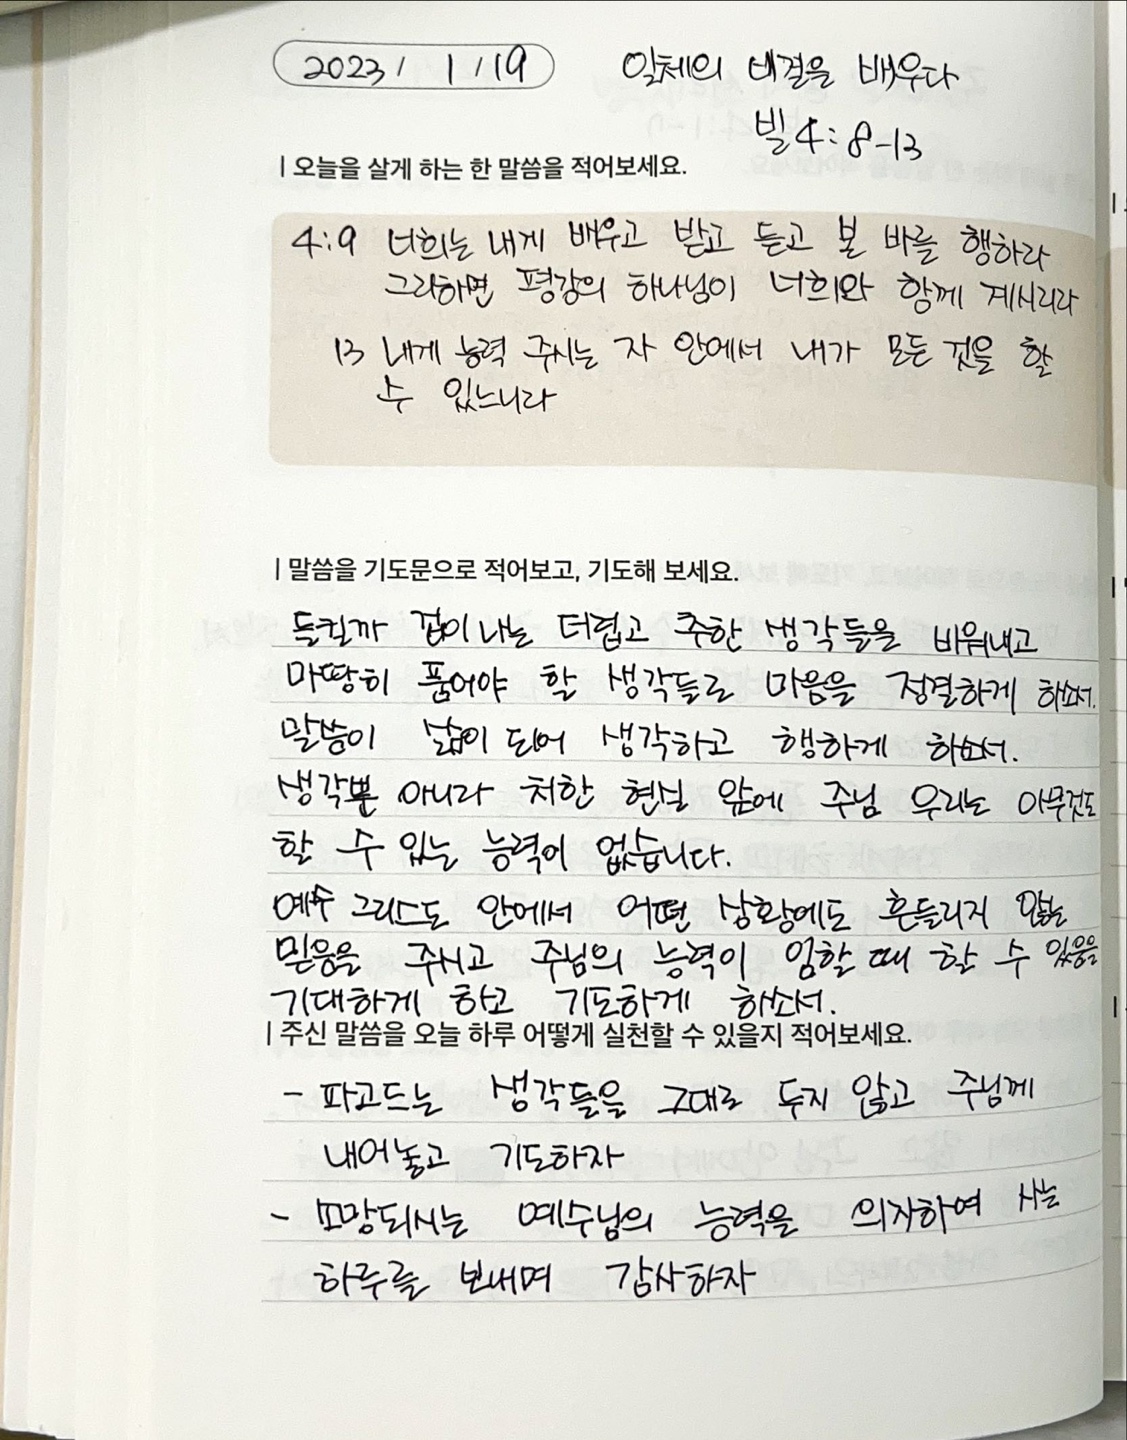 2023 / 1 / 19 일체의 비결을 배우다
빌 4 : 8-13
| 오늘을 살게 하는 한 말씀을 적어보세요.
4:9 너희는 내게 배우고 받고 듣고 본 바를 행하라
그리하면 평강의 하나님이 너희와 함께 계시리라
13 내게 능력 주시는 자 안에서 내가 모든 것을 할
수 있느니라
| 말씀을 기도문으로 적어보고, 기도해 보세요.
들킬까 겁이 나는 더럽고 추한 생각들을 비워내고
마땅히 품어야 할 생각들로 마음을 정결하게 하소서.
말씀이 삶이 되어 생각하고 행하게 하소서.
생각뿐 아니라 처한 현실 앞에 주님 우리는 아무것도
할 수 있는 능력이 없습니다.
예수 그리스도 안에서 어떤 상황에도 흔들리지 않는
믿음을 주시고 주님의 능력이 임할 때 할 수 있음을
기대하게 하고 기도하게 하소서.
| 주신 말씀을 오늘 하루 어떻게 실천할 수 있을지 적어보세요.
- 파고드는 생각들을 그대로 두지 않고 주님께
내어놓고 기도하자
- 소망되시는 예수님의 능력을 의지하여 사는
하루를 보내며 감사하자